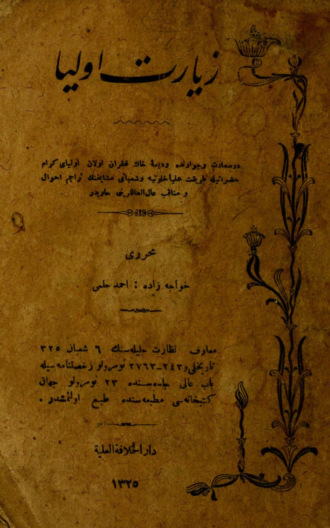 زيارت اوليا
درسعادت وجوارنده وديعۀ خاك غفران اولان اوليای كرام
حضراتيله طريقت عليۀ خلوتيه وشعبانی مشايخنك تراجم احوال
و مناقب
محرری
خواجه زاده : احمد حلمی
معارف نظارت جليله سنك ٦ شعبان ٣٢٥
تاريخلی و ٢٤٣-٢٧٦٣ نومرولو رخصتنامه سيله
باب عالی جاده سنده ٢٣ نومرولو جهان
كتبخانه سی مطبعه سنده طبع اولنمشدر .
دار الخلافة العلية
١٣٢٥